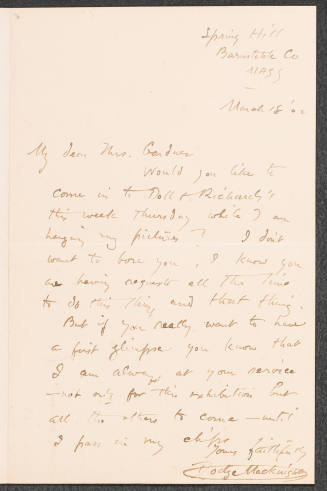 Spring Hill
Barnstable Co
MASS
March 18
My dear Mrs. Gardner
Would you like to
come in to Doll & Richard's
this week Thursday while I am
hanging my pictures? I don't
want to bore you; I know you
are having requests all the time
to do this thing and that thing.
But if you really want to have
a first glimpse you know that
I am always at your service
—not only for this exhibition but
all the others to come—until
I pass in my chips
Yours faithfully
Dodge Macknight